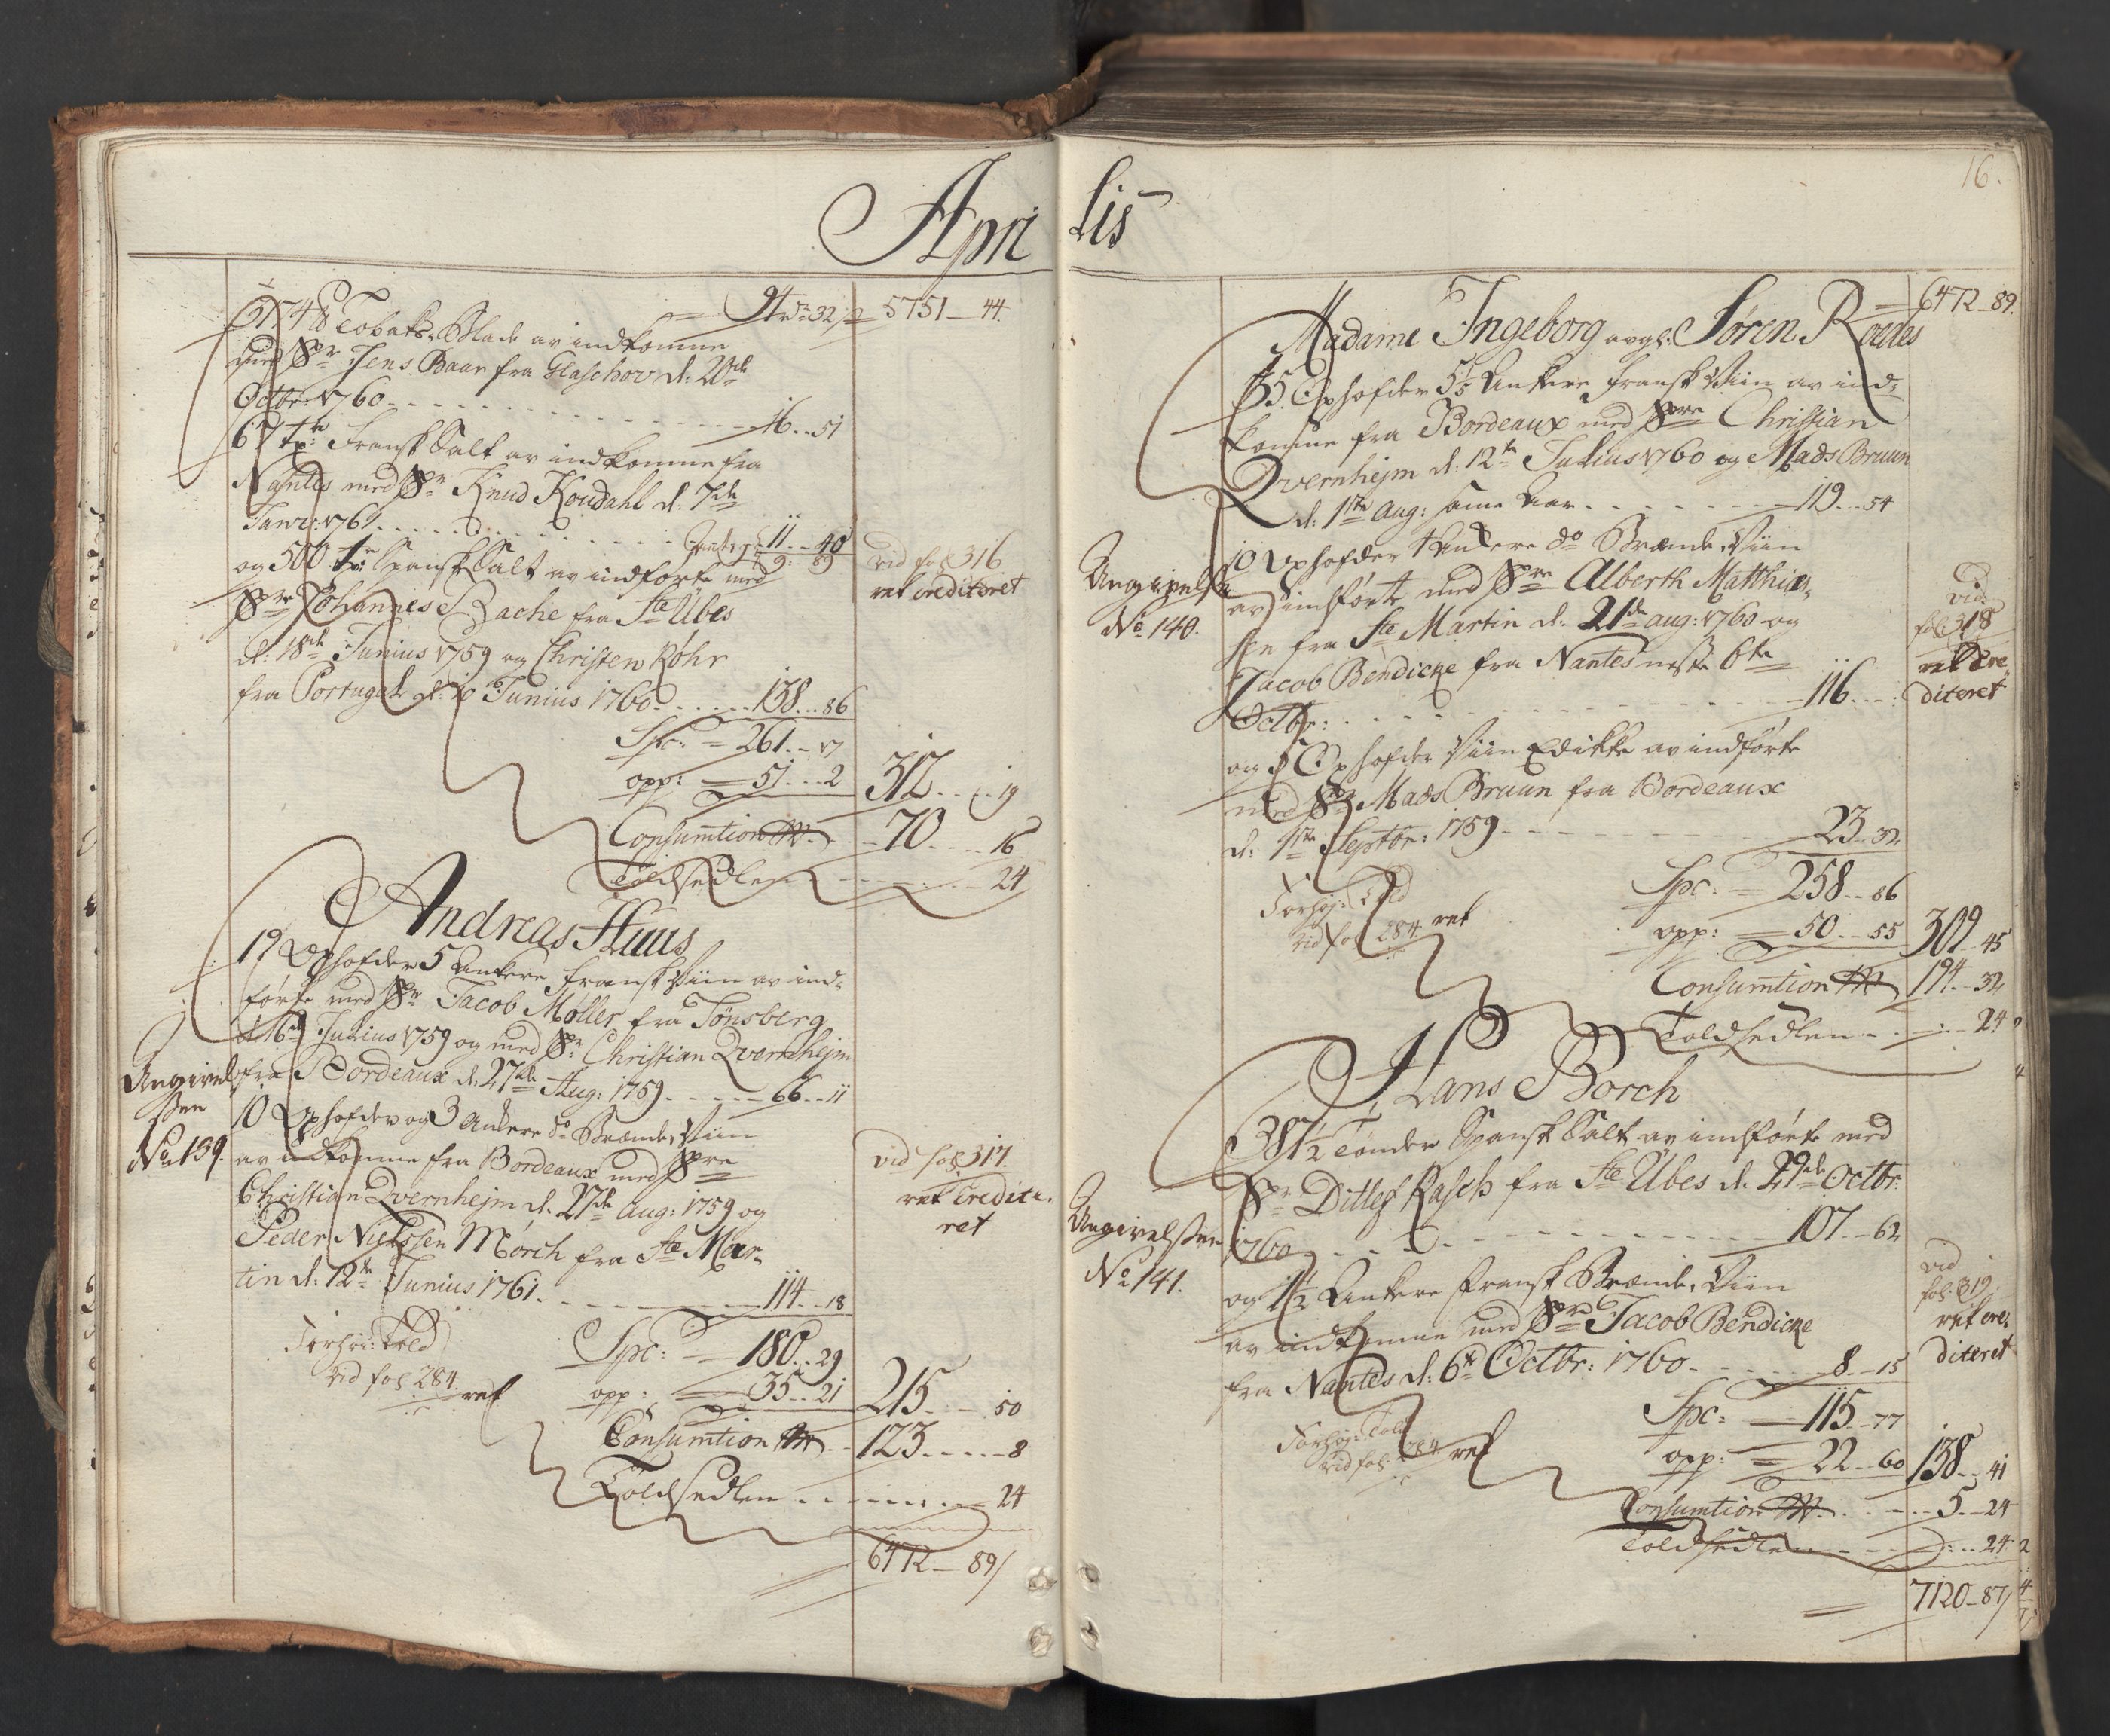 Aprilis
94 rd 32 / 5751 – 44.
3174 ℔ Tobaks Blade av indkomne
med Skpr Jens Baar fra Glaschov d: 20de
Octbr: 1760 - - - 16 .. 51
67 tr: Fransk Salt av indkomne fra
Nantes med Skpr Knud Koudahl d: 7de
Janv: 1761 - - - 11 .. 40
og 500 tr: Spansk Salt av indførte med
vid fol: 316
ret crediteret
Skpr Johannes Bache fra Ste Übes
d: 18de Junius 1759 og Christen Røhr
fra Portugal d: 10 Junius 1760 - - - 138 .. 86
Spc: = 261 .. 17
opp: = 51 .. 2 312 .. 19
Consumtion 70 .. 16
Toldsedlen - - - 24
Andreas Huus
19 Oxhofder 5 Ankere fransk Viin av ind-
førte med Skpr Jacob Møller fra Tønsberg
d: 16de Julius 1759 og med Skpr Christian Qvernhejm
fra Bordeaux d: 27de Aug: 1759 - - - 66 .. 11
Angivel
sen
No 139.
10 Oxhofder og 3 Ankere do Brænde Viin
av indkomne fra Bordeaux med Skpre
Christian Qvernhejm d. 27de Aug: 1759 og
Peder Nielssen Mørch fra Ste Mar-
tin d: 12te Junius 1761. - - - 114 .. 18
vid fol: 317.
ret Credite-
ret
Forhøi: Told
vid fol: 284. ret
Spc: = 180 .. 29
opp: = 35 .. 21 215 .. 50
Consumtion 123 .. 8
Toldsedlen - - - 24
6472 – 89/
16.
6472 – 89.
Madame Ingeborg avgl: Søren Roedes
35 Oxhofder 5 1/2 Ankere fransk Viin av ind-
komne fra Bordeaux med Skpre Christian
Qvernhejm d: 12te Julius 1760 og Mads Bruun
d: 1ste Aug: same Aar - - - 119 .. 54
Angivelsen
No 140.
10 Oxhofder 4 Ankere do Brænde Viin
av indførte med Skpre Alberth Matthias-
sen fra Ste Martin d: 21de Aug: 1760 og
Jacob Bendicke fra Nantes næste 6te
Octbr: - - - 116 ..
vid
fol: 318
ret Cre-
diteret
og 8 Oxhofder Viin Edikke av indførte
med Skpr Mads Bruun fra Bordeaux
d: 1ste Septbr: 1759 - - - 23 .. 32
Forhøj: Told
vid fol: 284 ret
Spc: = 258 .. 86
opp: = 50 .. 55 309 .. 45
Consumtion 194 .. 32
Toldsedlen - - - 24
Hans Borch
387 1/2 Tønder Spansk Salt av indførte med
Skpr Ditlef Rasch fra Ste Übes d. 29de Octbr:
1760 - - - 107 .. 62
Angivelsen
No 141.
og 1 1/2 Ankere fransk Brænde Viin
av indkomne med Skpre Jacob Bendicke
fra Nantes d: 6te Octbr: 1760 - - - 8 .. 15
vid
fol: 319
ret cre-
diteret
Forhøj: Told
vid fol: 284 ret
Spc: = 115 .. 77
opp: = 22 .. 60 138 .. 41
Consumtion - - - 5 .. 24
Toldsedlen - - - 24
7120 – 87/